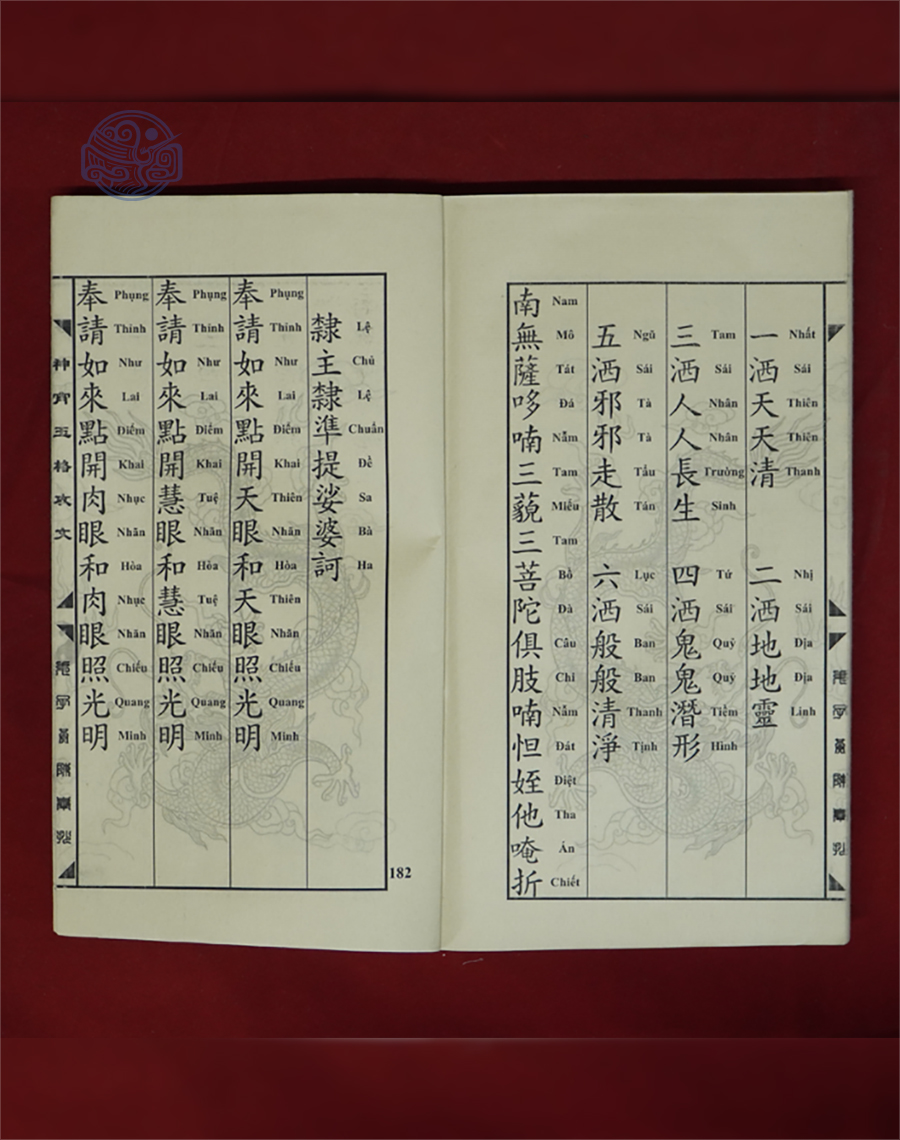 一洒天天清 二洒地地靈
Nhất Sái Thiên Thiên Thanh Nhị Sái Địa Địa Linh
三洒人人長生 四洒鬼鬼潛形
Tam Sái Nhân Nhân Trường Sinh Tứ Sái Quỷ Quỷ Tiềm Hình
五洒邪邪走散 六洒般般清淨
Ngũ Sái Tà Tà Tẩu Tán Lục Sái Ban Ban Thanh Tịnh
南無薩哆喃三藐三菩陀俱肢喃怛姪他唵折
Nam Mô Tát Đá Nẫm Tam Miếu Tam Bồ Đà Câu Chi Nẫm Đát Điệt Tha Án Chiết
隸主隸準提娑婆訶
Lệ Chủ Lệ Chuẩn Đề Sa Bà Ha
奉請如來點開天眼和天眼照光明
Phụng Thỉnh Như Lai Điểm Khai Thiên Nhãn Hòa Thiên Nhãn Chiếu Quang Minh
奉請如來點開慧眼和慧眼照光明
Phụng Thỉnh Như Lai Điểm Khai Tuệ Nhãn Hòa Tuệ Nhãn Chiếu Quang Minh
奉請如來點開肉眼和肉眼照光明
Phụng Thỉnh Như Lai Điểm Khai Nhục Nhãn Hòa Nhục Nhãn Chiếu Quang Minh
神霄玉格攻文
182